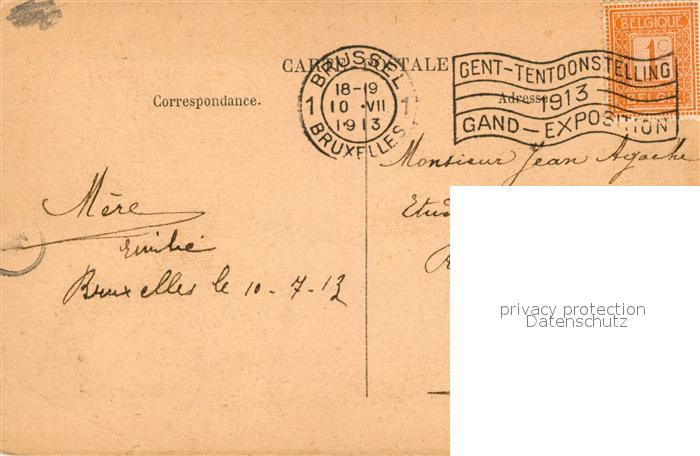 CARTE POSTALE
BELGIQUE
1c
BRUSSEL
18-19
1 10 VII 1
1913
BRUXELLES
GENT-TENTOONSTELLING
1913
GAND-EXPOSITION
Correspondance.
Adresse
Monsieur Jean Agache
Mère
Emilie
Bruxelles le 10-7-13
privacy protection
Datenschutz